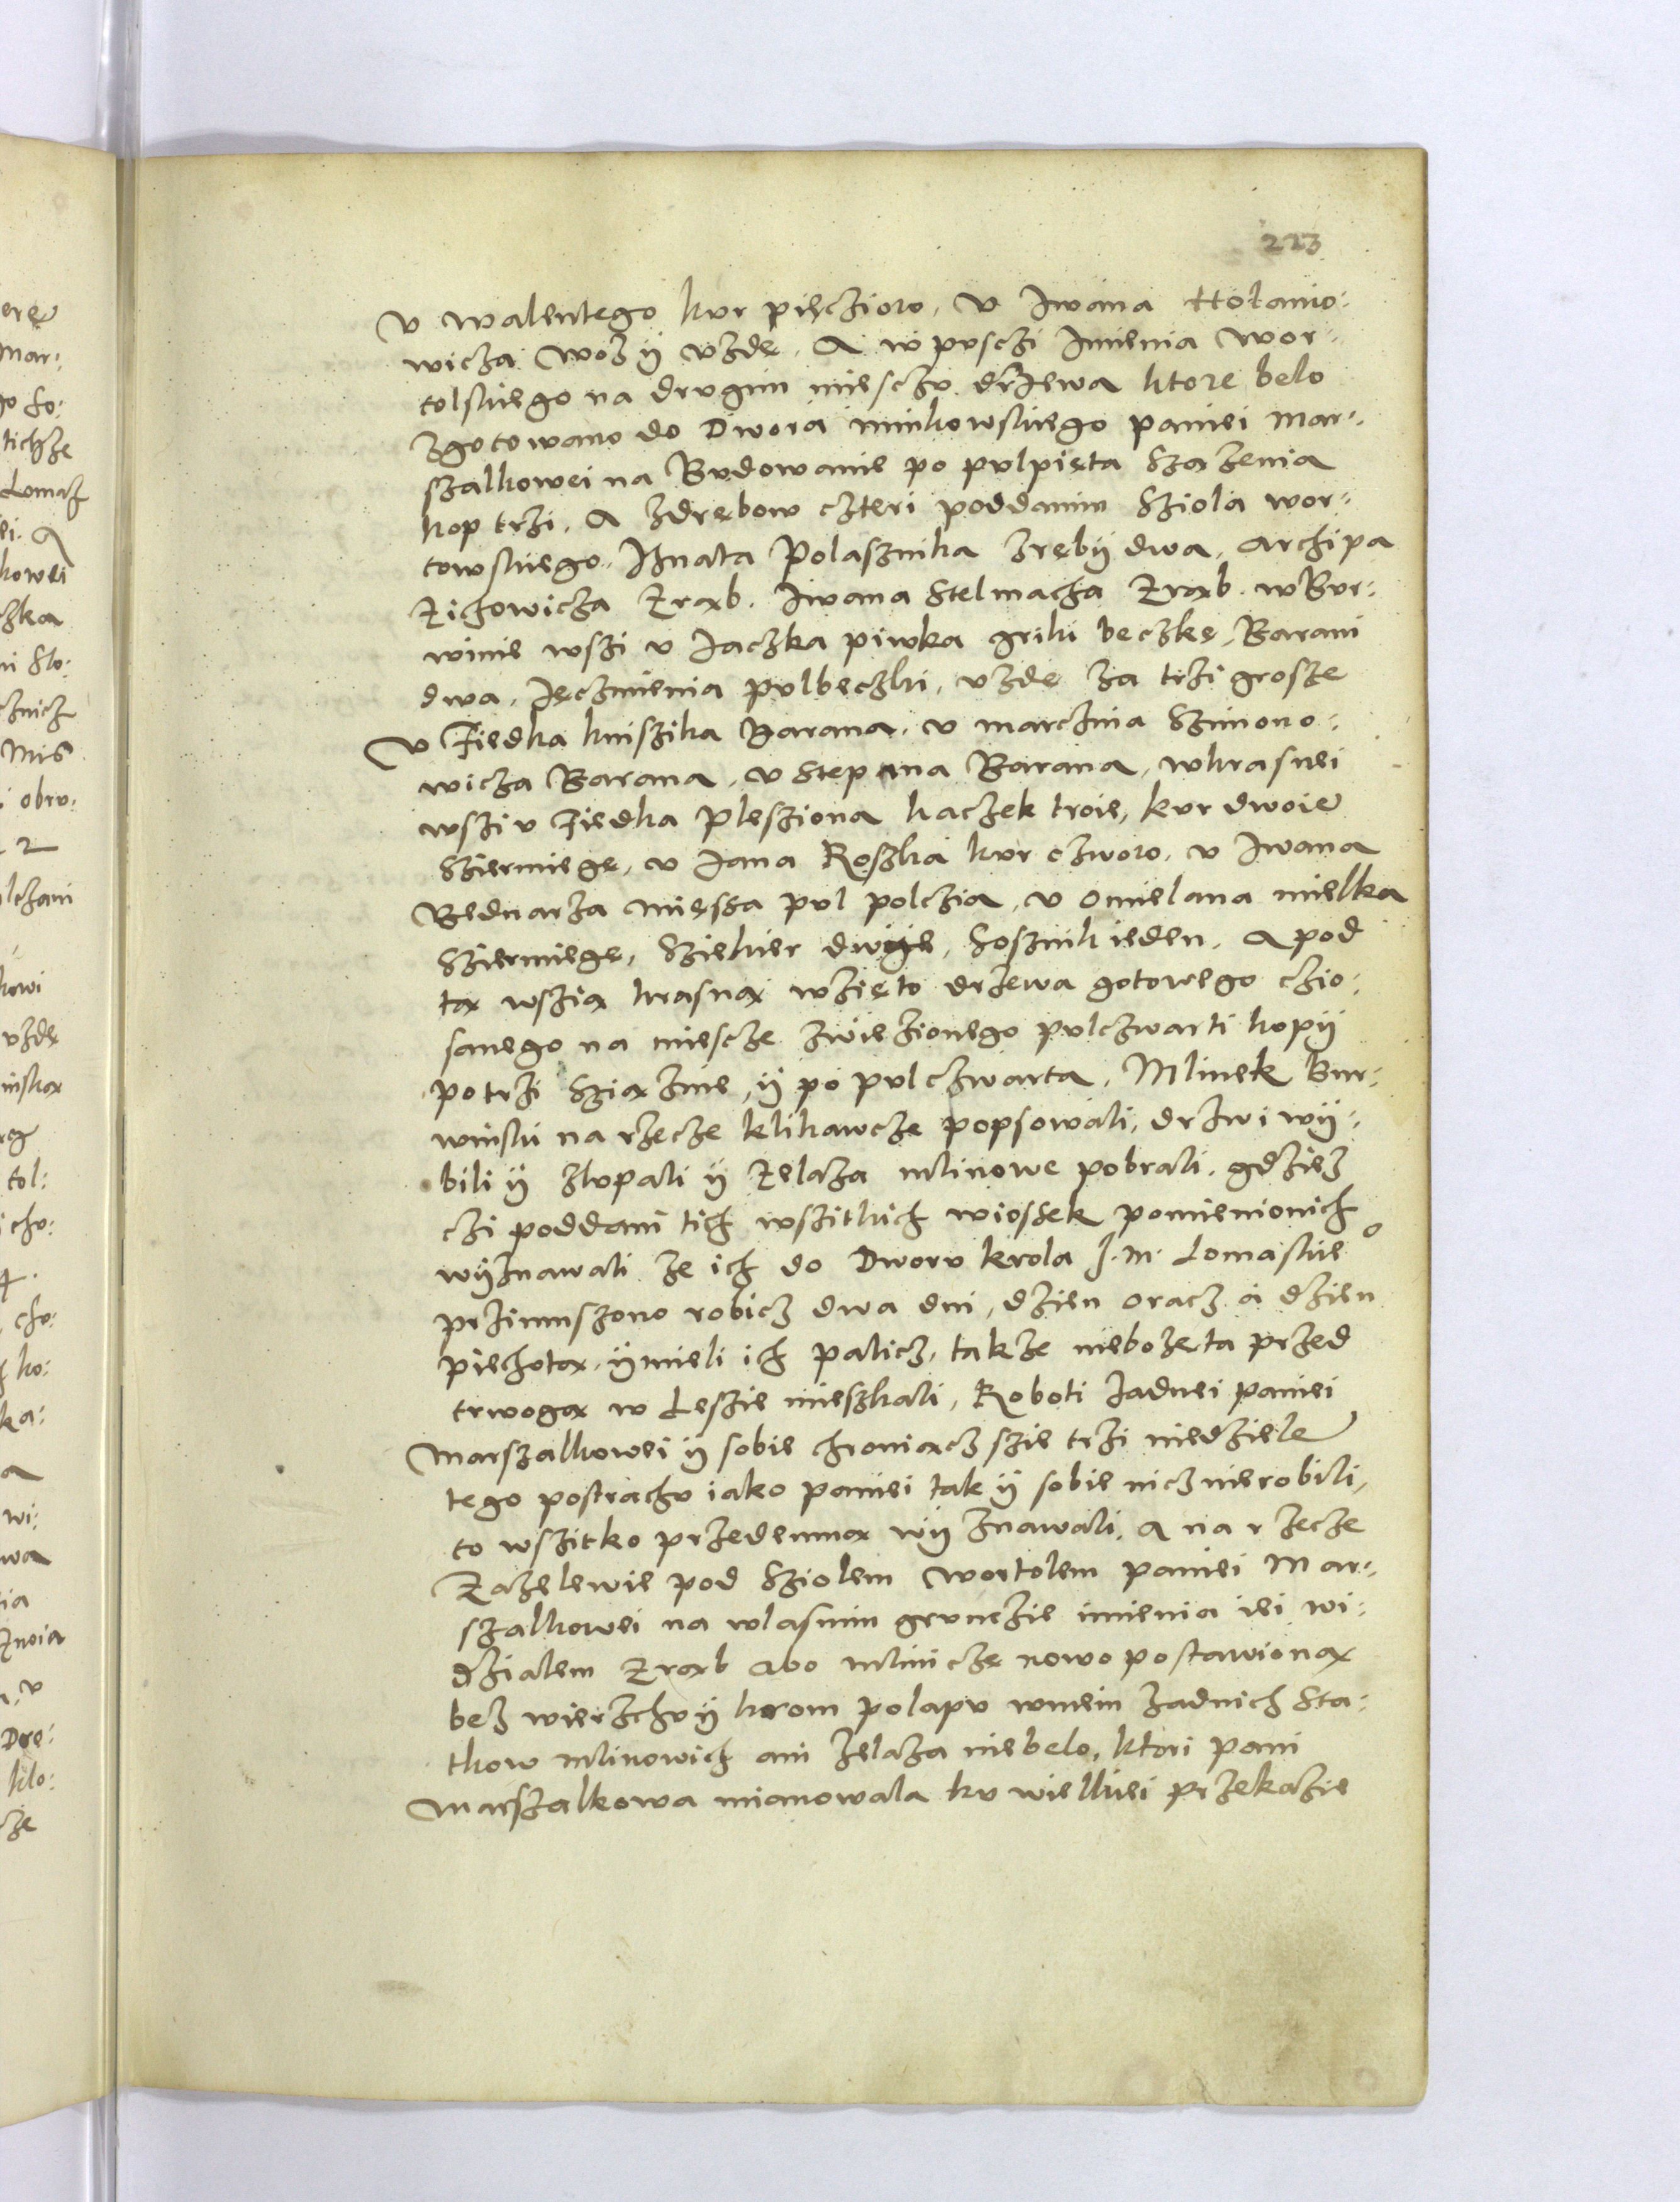 223
v walentego kvr pięczioro, v Iwana Hołano:
wicza woz ÿ vzdę. A w pvsczi Imienia wor:
tolskiego na drvgim miesczv drzewa ktore belo
zgotowano do Dwora minkowskiego paniei Mar:
szalkowei na Bvdowanie po pvlpięta szazenia
kop trzi. A zdrębow czteri poddanim sziola wor:
towskiego. Ihnata Polasznika zrębÿ dwa, Archipa
Zichowicza Zrąb. Iwana Stelmacha Zrąb. w Bvr:
winie wszi v Iaczka piwka griki beczkę, Barani
dwa, Ięczmienia pvlbeczki, vzdę za trzi grosze
v Fiedka kniszika Barana. v marczina Szimono:
wicza Barana, v Stepana Barana, w krasnei
wszi v Fiedka Plesziona kaczek troie, kvr dwoie
Sziermięgę, v Iana Roszka kvr czworo, v Iwana
Bednarza mięssa pvl polczia, v omielana mielka
Sziermięgę, Sziekier dwije, Sosznik ieden. A pod
tą wszią krasną wzięto drzewa gotowego czio:
sanego na miescze zwiezionego pvlczwarti kopÿ
po trzi sziązine, ÿ po pvlczwarta, Mlinek Bur:
winski na rzecze klikawcze popsowali, drzwi wÿ:
bili ÿ zlvpali ÿ Zelaza mlinowe pobrali. gdziez
czi poddani tich wszitkich wiossek pomienionich
wÿznawali ze ich do Dworv krola J. M. Lomaskie°
przimuszono robicz dwa dni, dzien oracz á dzien
piechotą. ÿ mieli ich palicz, takze nieboze̜ta przed
trwogą w Leszie mieszkali, Roboti zadnei paniei
Marszalkowei ÿ sobie chroniącz szie trzi niedziele
tego postrachv iako paniei tak ÿ sobie nicz nierobili,
to wszitko przedemną wÿznawali, A na rzecze
Zazelewie pod Sziolem wortolem paniei Mar:
szalkowei na wlasnim grvnczie imienia iei wi:
dzialem Zrąb abo mlinicze̜ nowo postawioną
bez wierzchv ÿ krom polapv w niein zadnich sta:
tkow mlinowich ani zelaza niebelo, ktori pani
Marszalkowa mianowala kv wielkiei przekazie